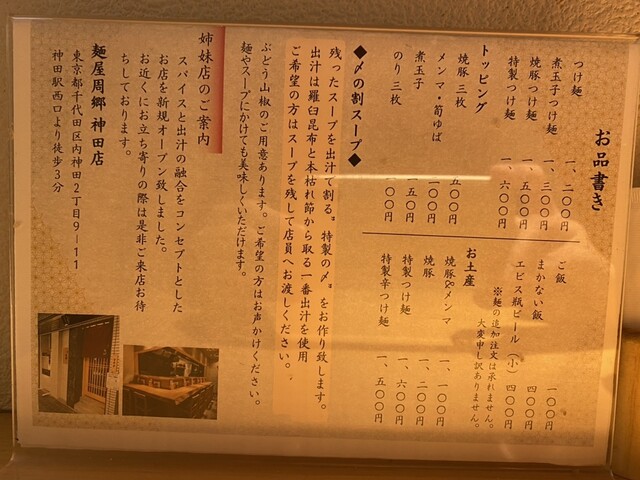 お品書き
つけ麺 一、二〇〇円
煮玉子つけ麺 一、三〇〇円
焼豚つけ麺 一、五〇〇円
特製つけ麺 一、六〇〇円
トッピング
焼豚 三枚 五〇〇円
メンマ・筍ゆば 一〇〇円
煮玉子 一五〇円
のり 三枚 〇〇円
ご飯 一〇〇円
まかない飯 四〇〇円
エビス瓶ビール（小） 四〇〇円
※麺の追加注文は承れません。
大変申し訳ありません。
お土産
焼豚&メンマ 一、一〇〇円
焼豚 一、二〇〇円
特製つけ麺 一、六〇〇円
特製辛つけ麺 一、五〇〇円
◆〆の割スープ◆
残ったスープを出汁で割る〝特製の〆〟をお作り致します。
出汁は羅臼昆布と本枯れ節から取る一番出汁を使用
ご希望の方はスープを残して店員へお渡しください。
ぶどう山椒のご用意あります。ご希望の方はお声かけください。
麺やスープにかけても美味しくいただけます。
姉妹店のご案内
スパイスと出汁の融合をコンセプトとした
お店を新規オープン致しました。
お近くにお立ち寄りの際は是非ご来店お待
ちしております。
麺屋周郷 神田店
東京都千代田区内神田２丁目９－１１
神田駅西口より徒歩３分